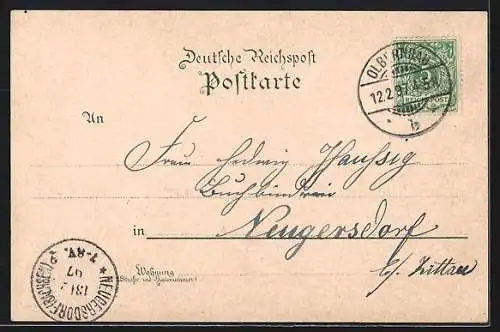 Deutsche Reichspost
Postkarte
OLBERNHAU
12.2.97
REICHSPOST
An
Frau Hedwig Haussig
Buchbinderei
in Neugersdorf
b/ Zittau
Wohnung
(Straße und Hausnummer)
NEUGERSDORF (SACHSEN)
13/2
97
7-8V.